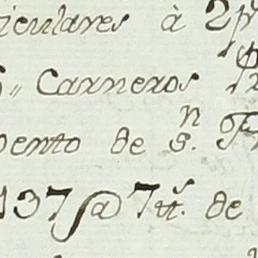 iculares à 2p
Carneros
ento de S.n Fr
137@ 7 tt.s de